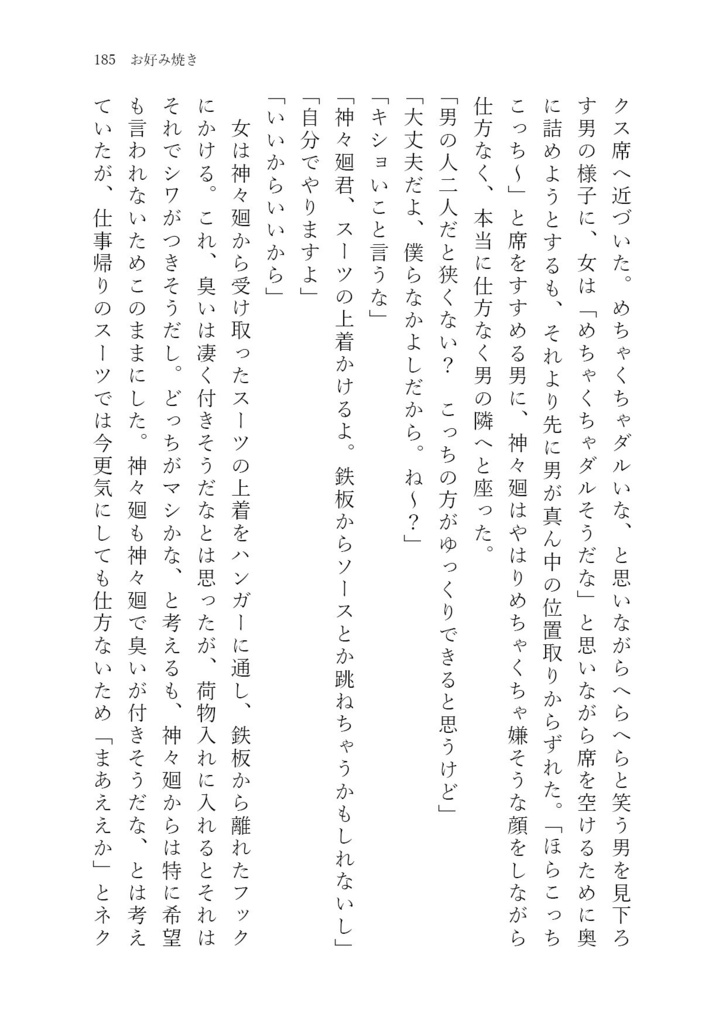 185 お好み焼き
クス席へ近づいた。めちゃくちゃダルいな、と思いながらへらへらと笑う男を見下ろ
す男の様子に、女は「めちゃくちゃダルそうだな」と思いながら席を空けるために奥
に詰めようとするも、それより先に男が真ん中の位置取りからずれた。「ほらこっち
こっち〜」と席をすすめる男に、神々廻はやはりめちゃくちゃ嫌そうな顔をしながら
仕方なく、本当に仕方なく男の隣へと座った。
「男の人二人だと狭くない？　こっちの方がゆっくりできると思うけど」
「大丈夫だよ、僕らなかよしだから。ね〜？」
「キショいこと言うな」
「神々廻君、スーツの上着かけるよ。鉄板からソースとか跳ねちゃうかもしれないし」
「自分でやりますよ」
「いいからいいから」
　女は神々廻から受け取ったスーツの上着をハンガーに通し、鉄板から離れたフック
にかける。これ、臭いは凄く付きそうだなとは思ったが、荷物入れに入れるとそれは
それでシワがつきそうだし。どっちがマシかな、と考えるも、神々廻からは特に希望
も言われないためこのままにした。神々廻も神々廻で臭いが付きそうだな、とは考え
ていたが、仕事帰りのスーツでは今更気にしても仕方ないため「まあええか」とネク